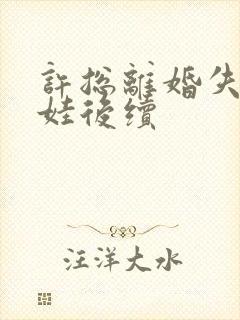 許總離婚失
娃後續
汪洋大水